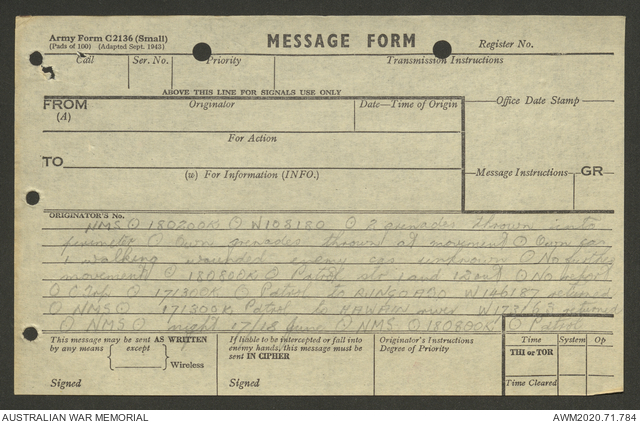 Army Form C2136 (Small)
(Pads of 100) (Adapted Sept. 1943)
MESSAGE FORM
Register No.
Call
Ser. No.
Priority
Transmission Instructions
ABOVE THIS LINE FOR SIGNALS USE ONLY
FROM
(A)
Originator
Date—Time of Origin
Office Date Stamp
For Action
TO
(w) For Information (INFO.)
Message Instructions
GR
ORIGINATOR'S No.
NMS O 180200K O W108180 O 2 grenades thrown into
perimeter O Own grenades thrown at movement O Own cas
1 walking wounded enemy cas unknown O No further
movement O 180800K O Patrol str 1 and 12 out O No report
O 171300K O Patrol to W146187 returned
O NMS O 171300K Patrol to HAWAIN river returned
O NMS O night 17/18 June O NMS O 180800K O Patrol
This message may be sent AS WRITTEN
by any means
except
Wireless
Signed
If liable to be intercepted or fall into
enemy hands, this message must be
sent IN CIPHER
Signed
Originator's Instructions
Degree of Priority
Time
System
Op
THI or TOR
Time Cleared
AUSTRALIAN WAR MEMORIAL
AWM2020.71.784